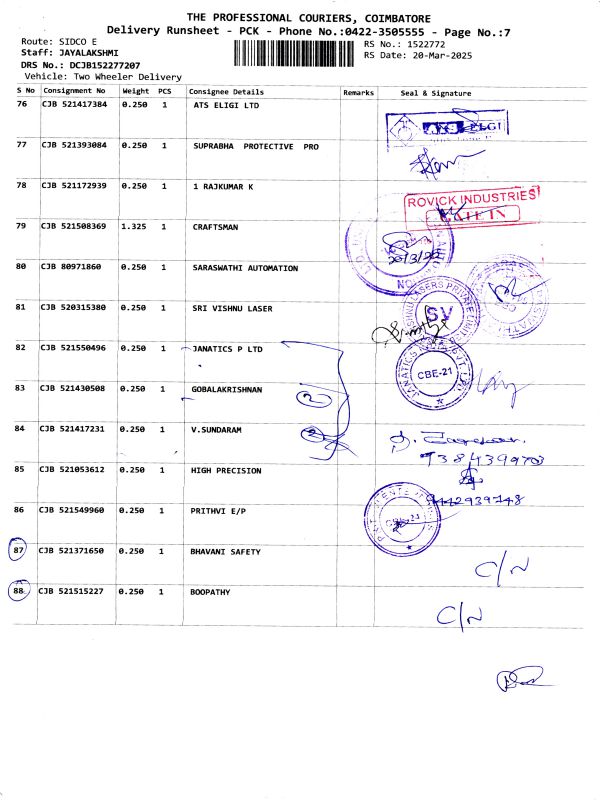 THE PROFESSIONAL COURIERS, COIMBATORE
Delivery Runsheet - PCK - Phone No.:0422-3505555 - Page No.:7
Route: SIDCO E
RS No.: 1522772
Staff: JAYALAKSHMI
RS Date: 20-Mar-2025
DRS No.: DCJB152277207
Vehicle: Two Wheeler Delivery
S No Consignment No Weight PCS Consignee Details Remarks Seal & Signature
76 CJB 521417384 0.250 1 ATS ELIGI LTD
ELGI
77 CJB 521393084 0.250 1 SUPRABHA PROTECTIVE PRO
78 CJB 521172939 0.250 1 1 RAJKUMAR K
ROVICK INDUSTRIES
79 CJB 521508369 1.325 1 CRAFTSMAN
20/3/25
80 CJB 80971860 0.250 1 SARASWATHI AUTOMATION
81 CJB 520315380 0.250 1 SRI VISHNU LASER
VISHNU LASERS PRIVATE LIMITED
SV
82 CJB 521550496 0.250 1 JANATICS P LTD
JANATICS
CBE-21
83 CJB 521430508 0.250 1 GOBALAKRISHNAN
2
84 CJB 521417231 0.250 1 V.SUNDARAM
2
9384399703
85 CJB 521053612 0.250 1 HIGH PRECISION
9442939748
86 CJB 521549960 0.250 1 PRITHVI E/P
87 CJB 521371650 0.250 1 BHAVANI SAFETY
C/N
88 CJB 521515227 0.250 1 BOOPATHY
C/N